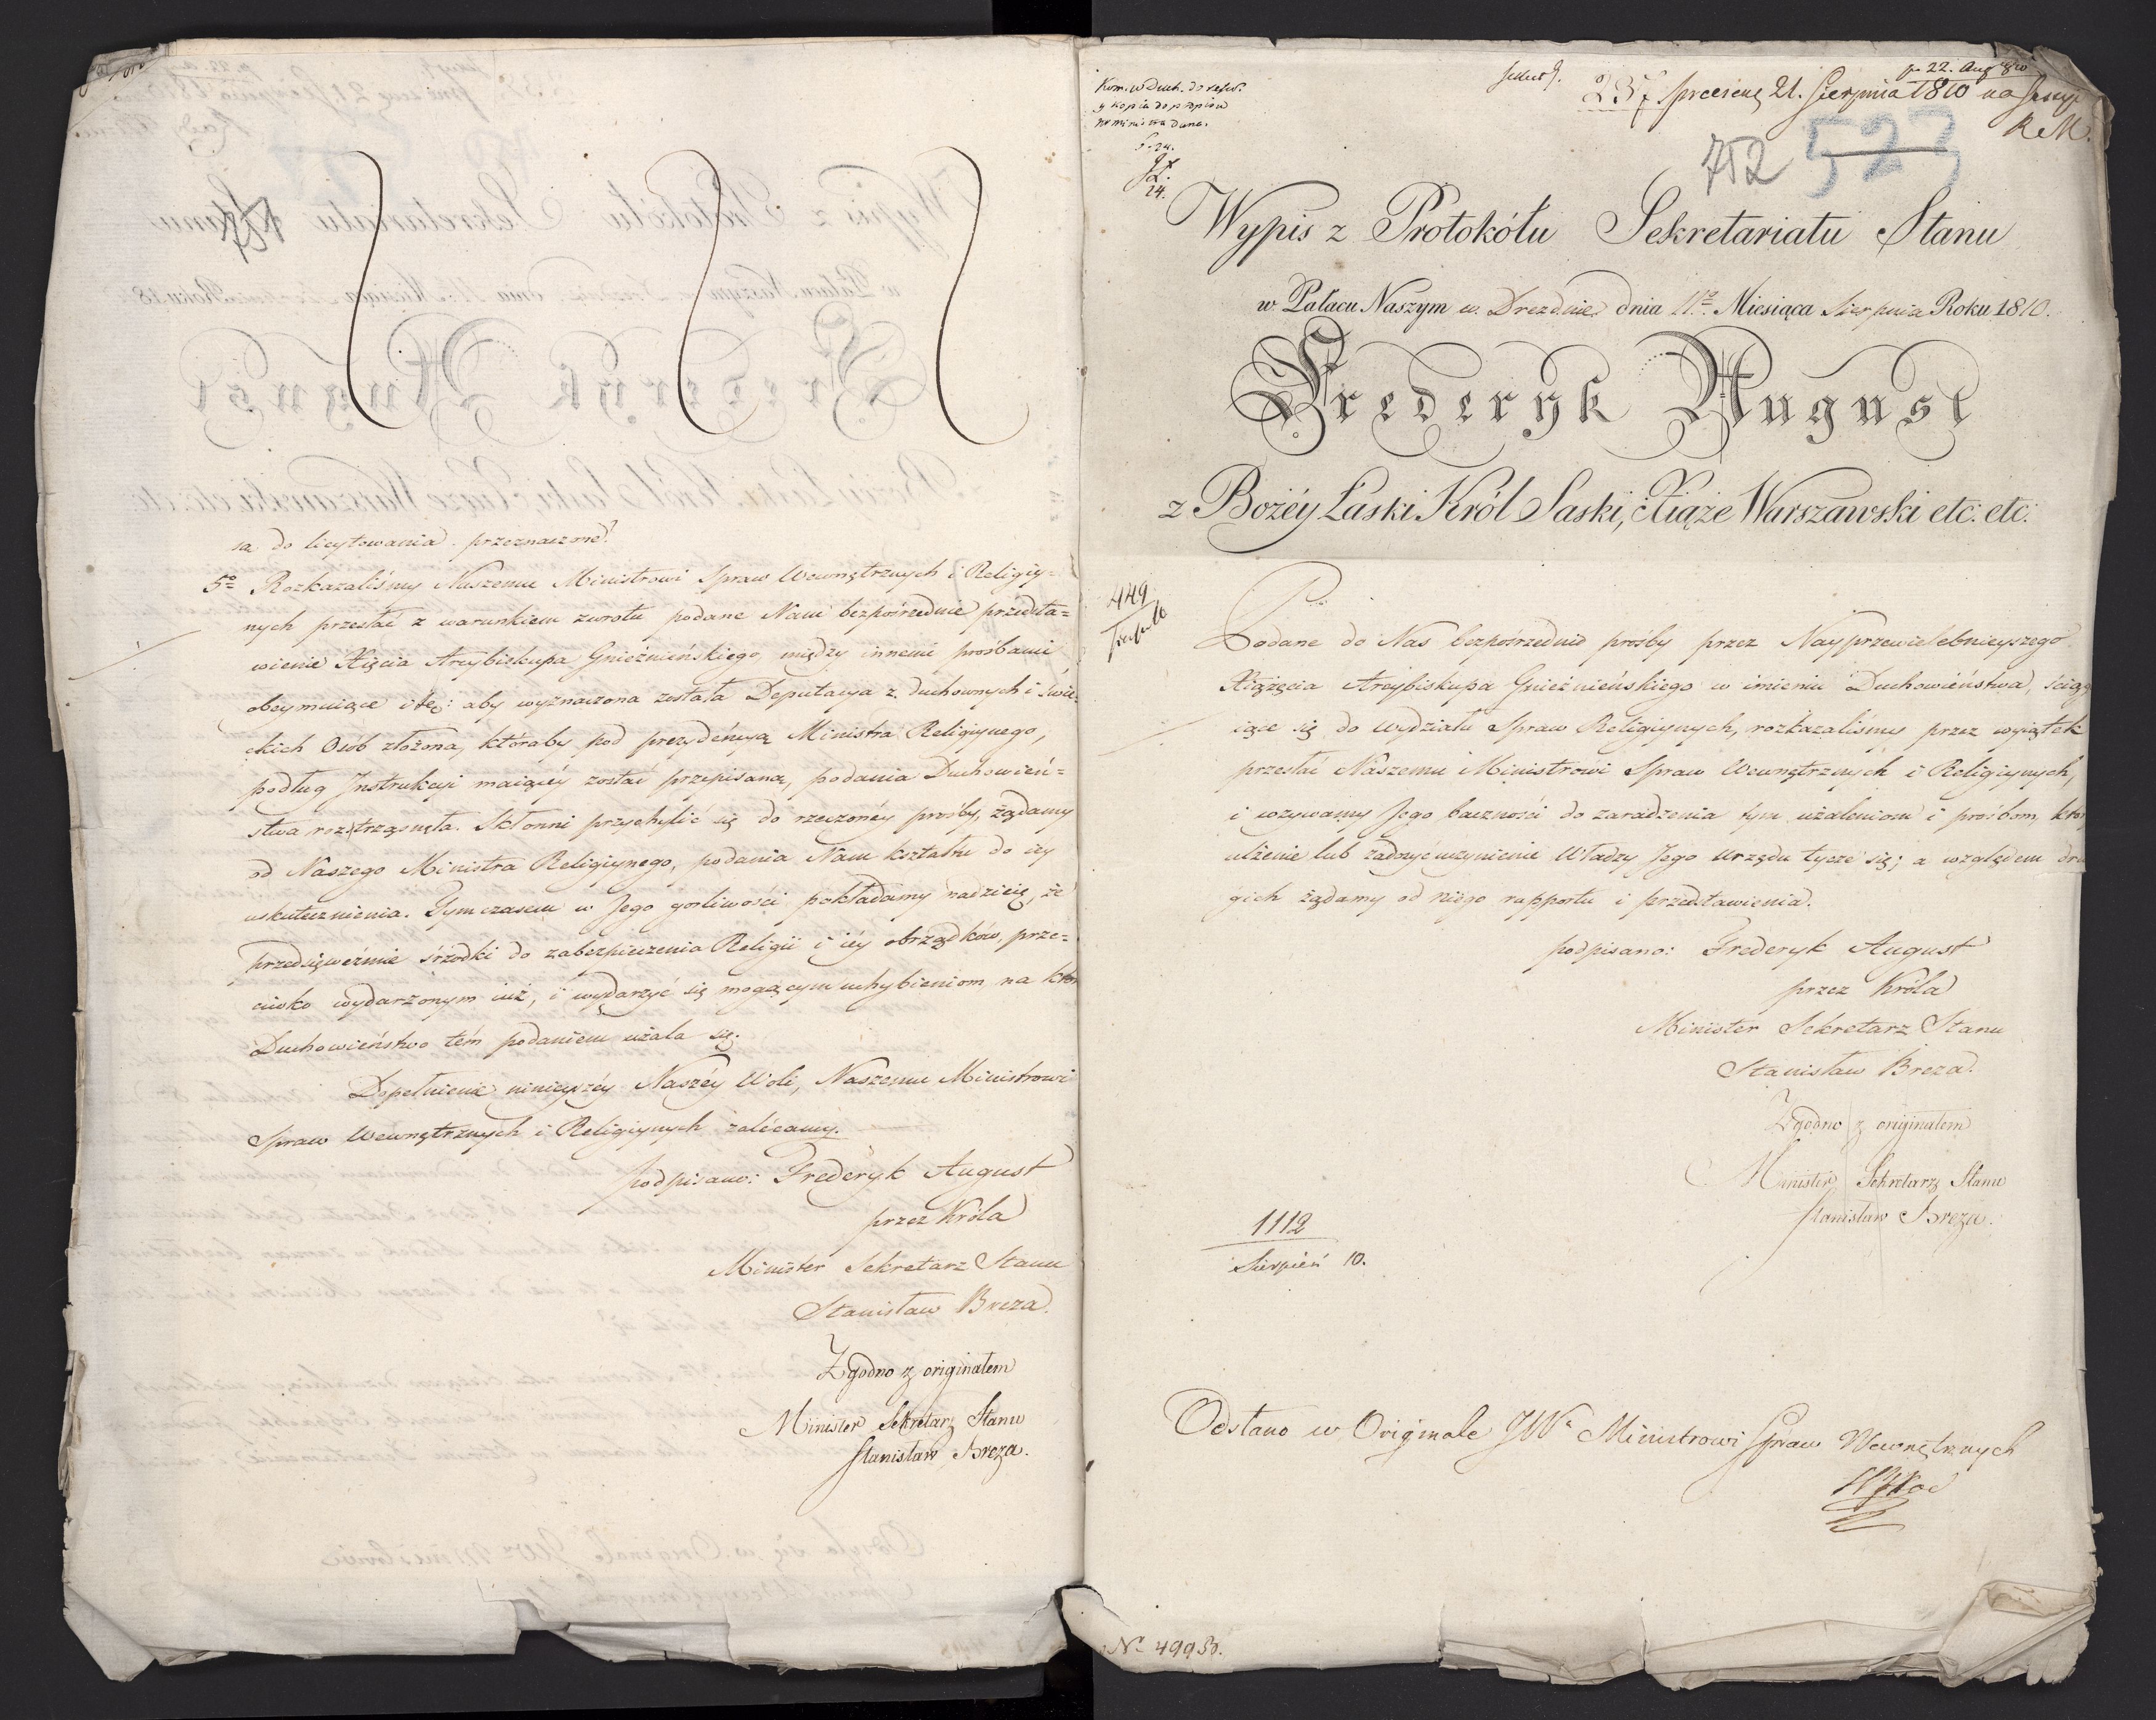 są do licytowania przeznaczone.
5º Rozkazaliśmy Naszemu Ministrowi Spraw Wewnętrznych i Religiy=
nych przesłać z warunkiem zwrotu podane Nam bezpośrednie przedsta=
wienie Xięcia Arcybiskupa Gnieźnieńskiego, między innemi prośbami
obeymuiące i tę: aby wyznaczona została Deputacya z duchownych i świe=
ckich Osób złożona, któraby pod prezydencyą Ministra Religiynego,
podług Instrukcyi maiącéy zostać przepisaną, podania Duchowień=
stwa roztrząsnęła. Skłonni przychylić się do rzeczonéy prośby, żądamy
od Naszego Ministra Religiynego, podania Nam kształtu do iéy
uskutecznienia. Tymczasem w Jego gorliwości pokładamy nadzieię, że
przedsięweźmie śrzodki do zabezpieczenia Religii i iéy obrządków, prze=
ciwko wydarzonym iuż, i wydarzyć się mogącym uchybieniom na które
Duchowieństwo tém podaniem użala się.
Dopełnienie ninieyszéy Naszéy Woli, Naszemu Ministrowi
Spraw Wewnętrznych i Religiynych zalécamy.
podpisano: Frederyk August
przez Króla
Minister Sekretarz Stanu
Stanisław Breza.
Zgodno z originałem
Minister Sekretarz Stanu
Stanisław Breza.
Kom. w Duch. do
y kopia do
24.
24.
pr 22. Aug 810
237 21. Sierpnia 1810 na
R M.
752 523
Wypis z Protokółu Sekretariatu Stanu
w Pałacu Naszym w Dreźnie dnia 11º Miesiąca Sierpnia Roku 1810.
Frederyk August
z Bożéy Łaski Król Saski, Xiąże Warszawski etc: etc:
449
Podane do Nas bezpośrzednio prośby przez Nayprzewielebnieyszego
Xiążęcia Arcybiskupa Gnieźnieńskiego w imieniu Duchowieństwa, ściąga
iące się do wydziału Spraw Religiynych, rozkazaliśmy przez wyiątek
przesłać Naszemu Ministrowi Spraw Wewnętrznych i Religiynych,
i wzywamy Jego baczności do zaradzenia tym użaleniom i prośbom, któr
ulżenie lub zadosyćuczynienie Władzy Jego Urzędu tycze się; a względem dru
gich żądamy od niego rapportu i przedstawienia.
podpisano: Frederyk August
przez Króla
Minister Sekretarz Stanu
Stanisław Breza.
Zgodno z originałem
Minister Sekretarz Stanu
Stanisław Breza.
1112
Sierpień 10.
Odsłano w Originale JWº Ministrowi Spraw Wewnętrznych
Nº 49930.